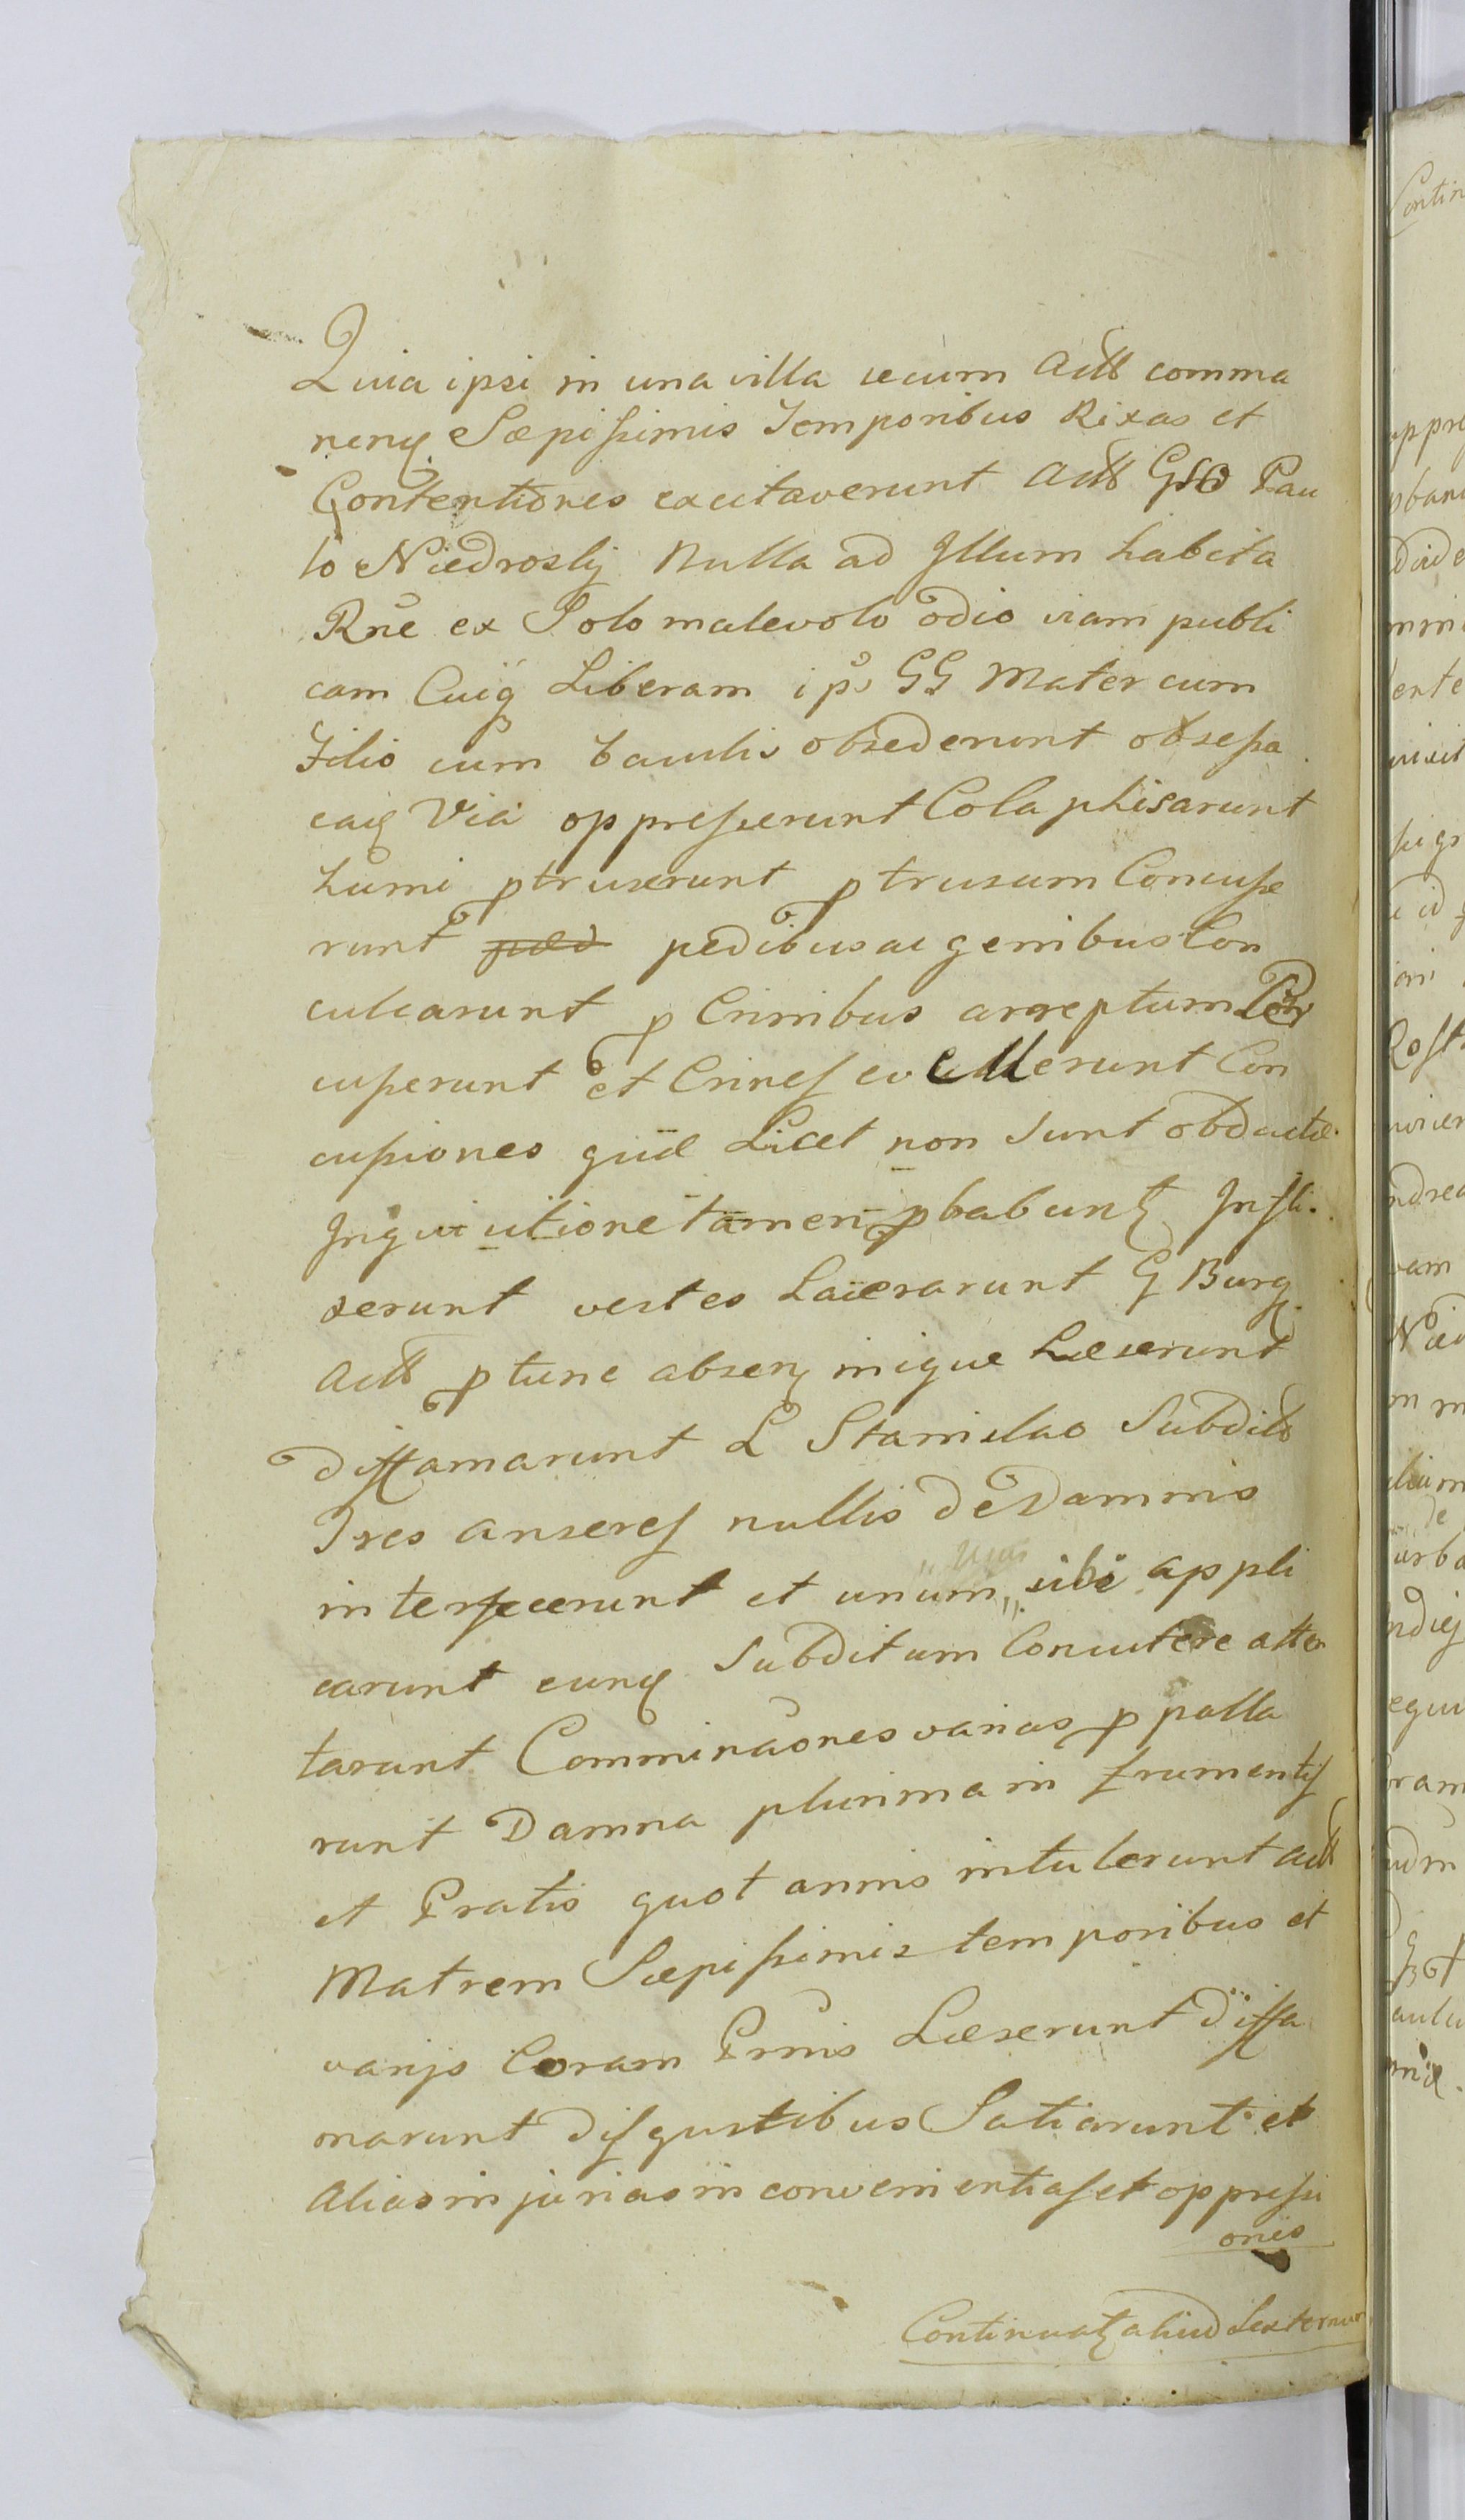 Quia ipsi in una villa secum Actt comma
nenq Sæpissimis Temporibus Rixas et
Contentiones excitaverunt Actt Gso Pau
lo Niedrosly Nulla ad Illum habita
Rne ex Solo malevolo odio viam publi
cam Cuiq Liberam ips GG Mater cum
Filio cum baculis obsederunt obsessa
eaq Via oppresserunt Colaphisarunt
humi ptruserunt ptrusum Concusse
runt pedibus ac genibus Con
culcarunt p Crinibus arreptum
cusserunt et Crines evellerunt Con
cussiones quæ Licet non Sunt obductæ
Inquisitione tamen pbabunt Infli
xerunt vestes Lacerarunt G Burg
Actt p tunc absen inique Læserunt
diffamarunt L Stanislao Subdito
Tres anseres nullis de Damnis
interfecerunt et unum sibi appli
carunt eunq Subditum Concutere atten
tarunt Comminaones varias p palla
runt Damna plurima in frumentis
et Pratis quot annis intulerunt Actt
Matrem Sæpissimis temporibus et
varijs Coram Prnis Læserunt diffa
marunt disgustibus Satiarunt et
Alias injurias inconvenientias et oppressi
ones
Continuat aliud Sexternum